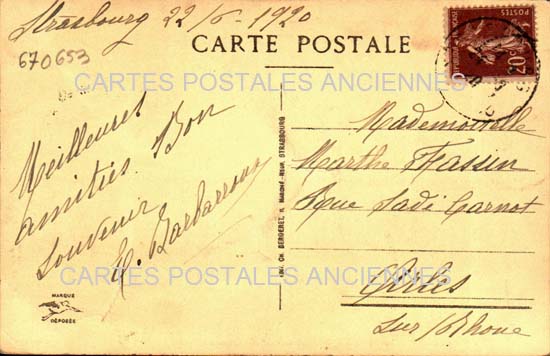 Strasbourg 22/6-1920
670653
CARTE POSTALE
POSTES
20c
CARTES POSTALES ANCIENNES
Meilleures
amitiés. Bon
souvenir
H. Barbarroux
Mademoiselle
Marthe Fassin
Rue Sadi Carnot
Arles
sur/Rhone
CARTES POSTALES ANCIENNES
IMP. CH. BERGERET, STRASBOURG
MARQUE
DÉPOSÉE